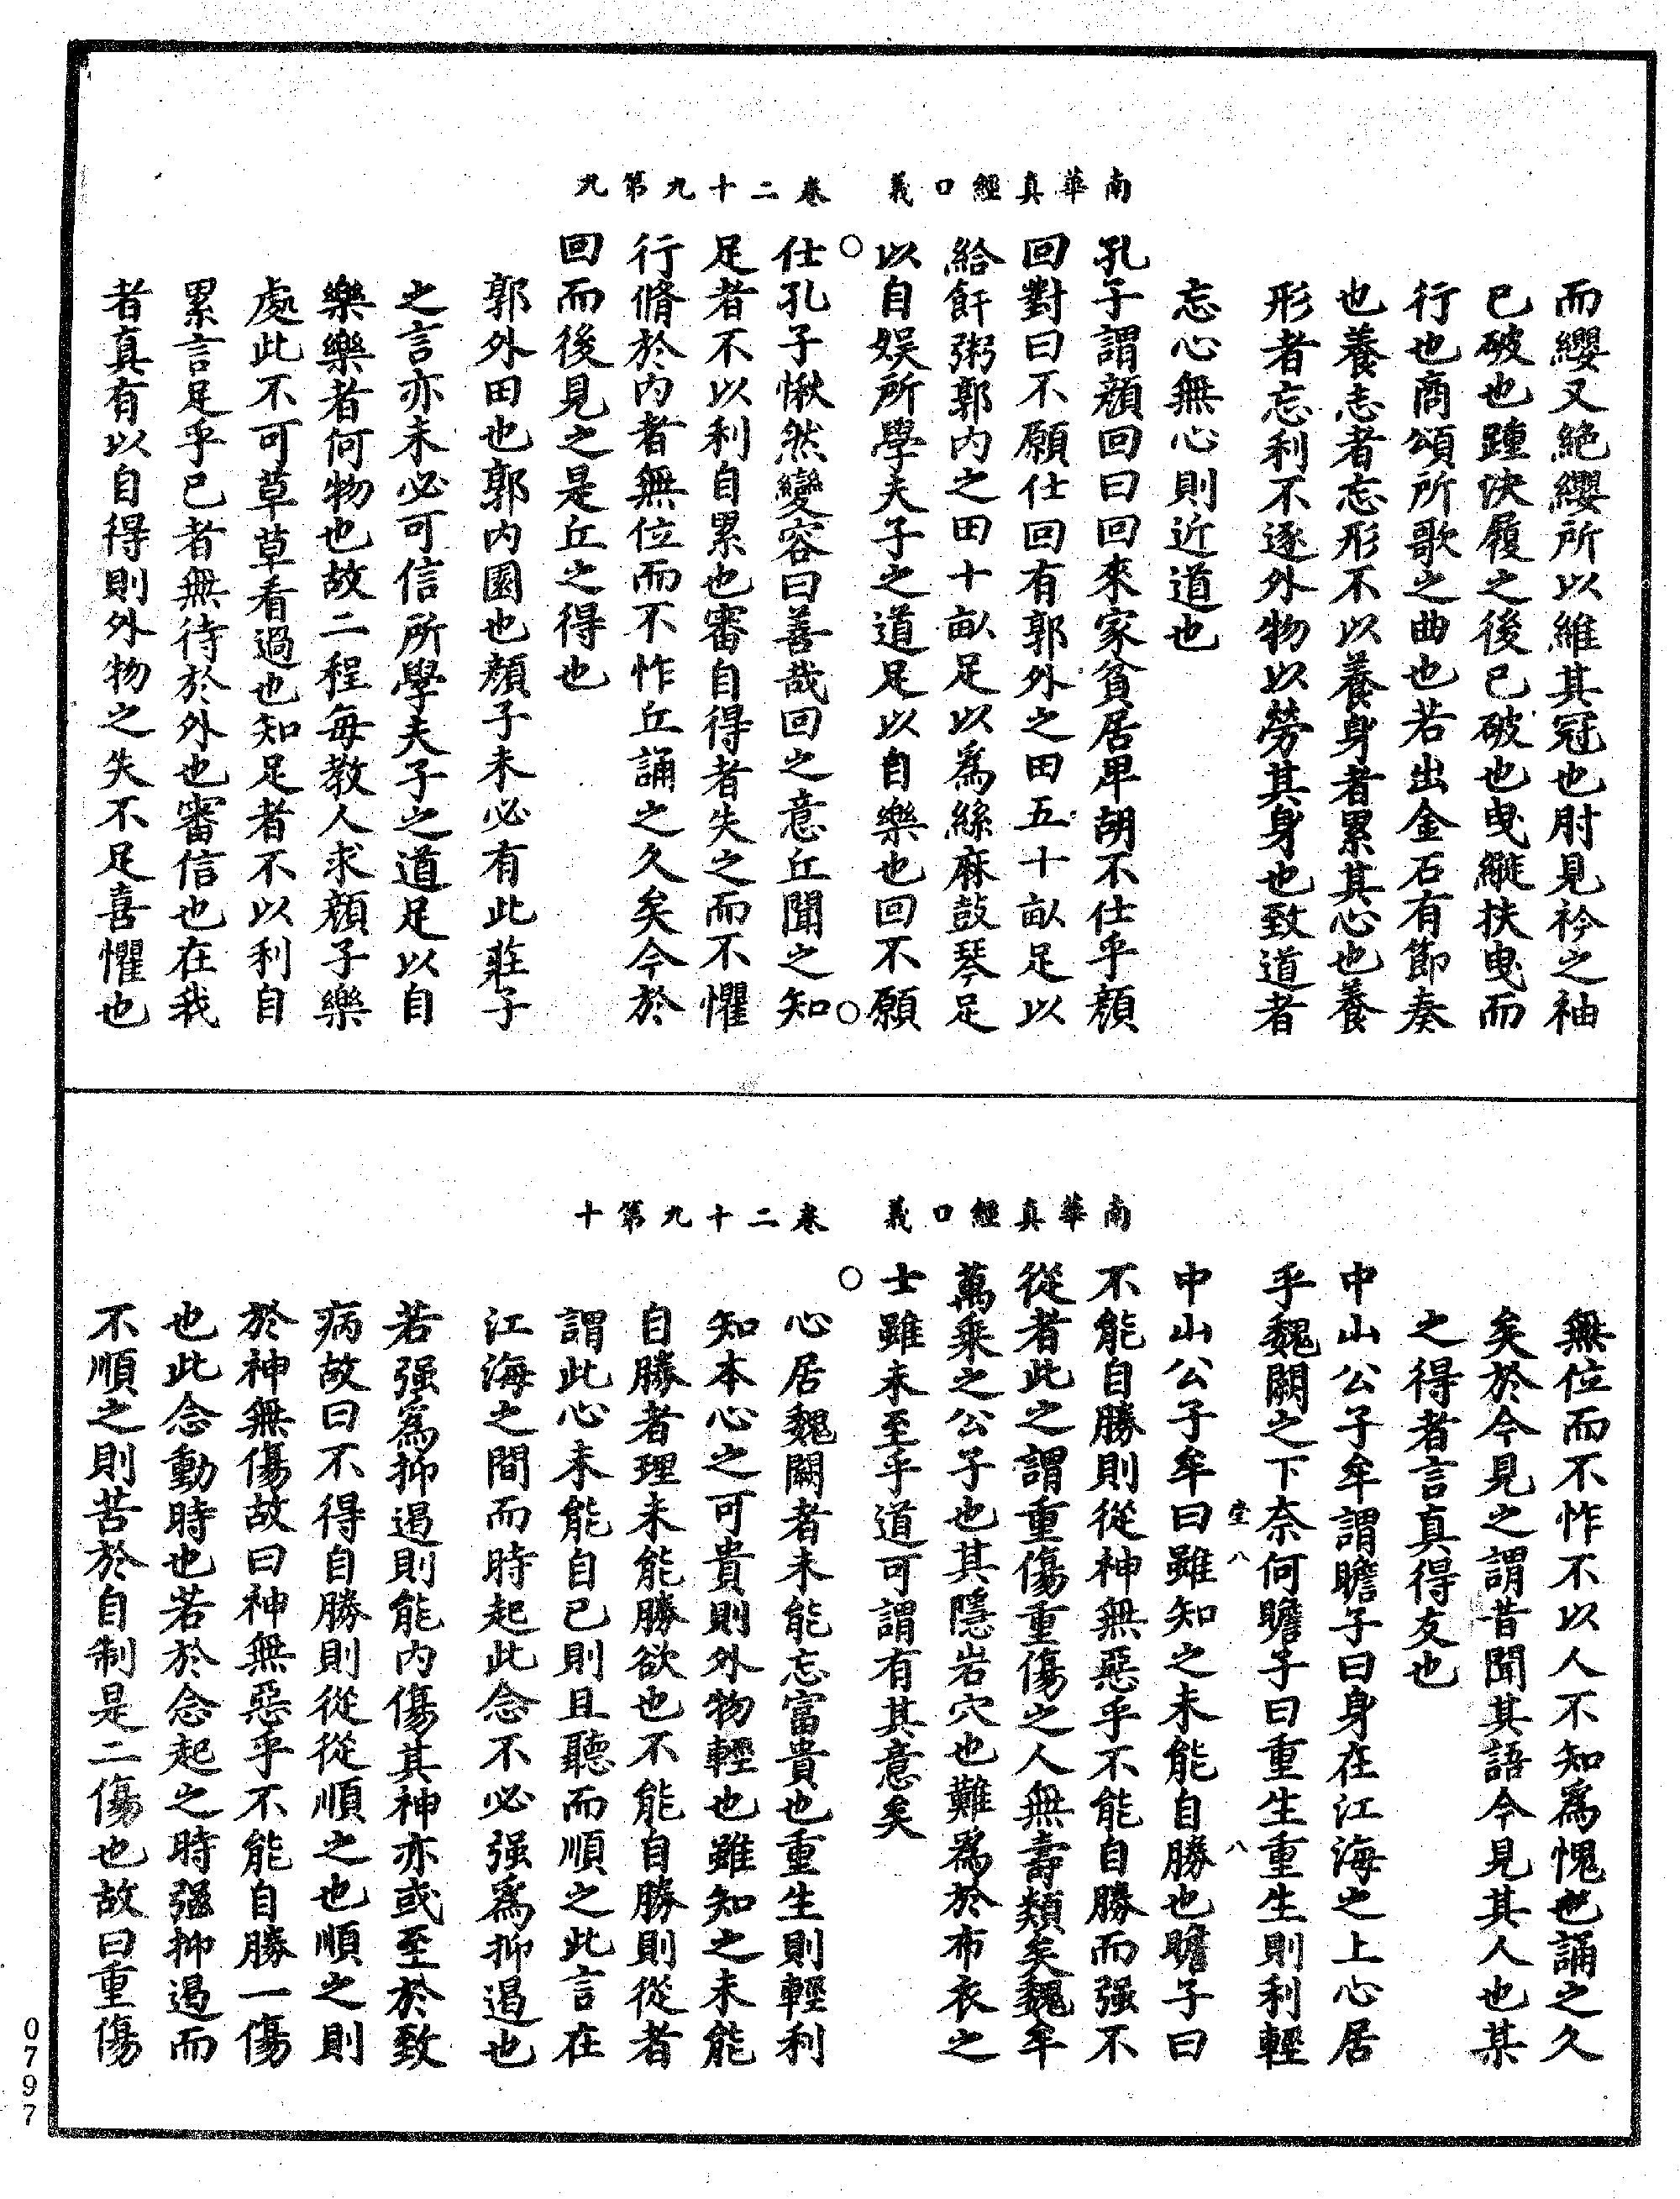 南華真經口義　卷二十九第九
而纓又絶纓所以維其冠也肘見衿之袖
已破也踵决履之後已破也曳縰扶曳而
行也商頌所歌之曲也若出金石有節奏
也養志者忘形不以養身者累其心也養
形者忘利不逐外物以勞其身也致道者
忘心無心則近道也
孔子謂顔回曰回來家貧居卑胡不仕乎顔
回對曰不願仕回有郭外之田五十畝足以
給飦粥郭内之田十畝足以爲絲麻鼓琴足
以自娱所學夫子之道足以自樂也回不願
仕孔子愀然變容曰善哉回之意丘聞之知
足者不以利自累也審自得者失之而不懼
行脩於内者無位而不怍丘誦之久矣今於
回而後見之是丘之得也
郭外田也郭内園也顔子未必有此莊子
之言亦未必可信所學夫子之道足以自
樂樂者何物也故二程每教人求顔子樂
處此不可草草看過也知足者不以利自
累言足乎已者無待於外也審信也在我
者真有以自得則外物之失不足喜懼也
南華真經口義　卷二十九第十
無位而不怍不以人不知爲愧也誦之久
矣於今見之謂昔聞其語今見其人也某
之得者言真得友也
中山公子牟謂瞻子曰身在江海之上心居
乎魏闕之下奈何瞻子曰重生重生則利輕
堂八　八
中山公子牟曰雖知之未能自勝也瞻子曰
不能自勝則從神無惡乎不能自勝而强不
從者此之謂重傷重傷之人無壽類矣魏牟
萬乘之公子也其隱岩穴也難爲於布衣之
士雖未至乎道可謂有其意矣
心居魏闕者未能忘富貴也重生則輕利
知本心之可貴則外物輕也雖知之未能
自勝者理未能勝欲也不能自勝則從者
謂此心未能自已則且聽而順之此言在
江海之間而時起此念不必强爲抑遏也
若强爲抑遏則能内傷其神亦或至於致
病故曰不得自勝則從從順之也順之則
於神無傷故曰神無惡乎不能自勝一傷
也此念動時也若於念起之時强抑遏而
不順之則苦於自制是二傷也故曰重傷
0797